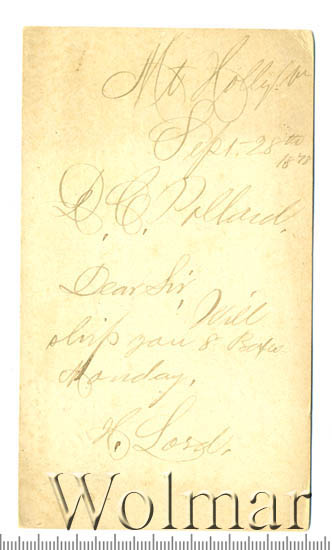 Mt Holly. Vt
Sept. 28th
1878
D. C. Pollard.
Dear Sir,
Will
ship you 8 Boxes
Monday.
H. Lord.
Wolmar